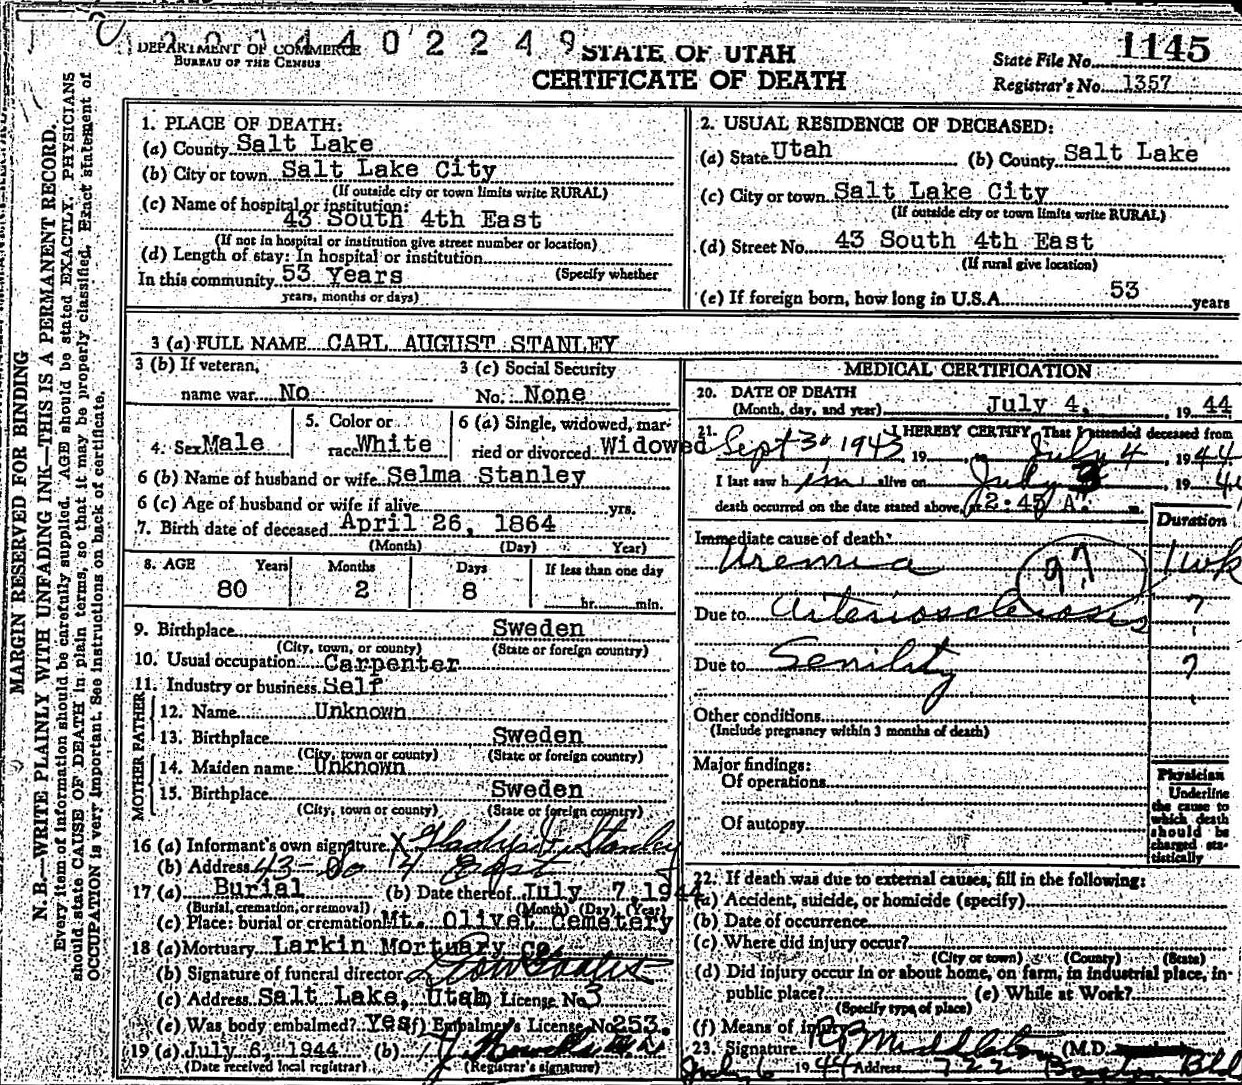 DEPARTMENT OF COMMERCE
BUREAU OF THE CENSUS
4 4 0 2 2 4 9
STATE OF UTAH
CERTIFICATE OF DEATH
State File No. 1145
Registrar's No. 1357
MARGIN RESERVED FOR BINDING
N. B.—WRITE PLAINLY WITH UNFADING INK—THIS IS A PERMANENT RECORD.
Every item of information should be carefully supplied. AGE should be stated EXACTLY. PHYSICIANS
should state CAUSE OF DEATH in plain terms, so that it may be properly classified. Exact statement of
OCCUPATION is very important. See instructions on back of certificate.
1. PLACE OF DEATH:
(a) County Salt Lake
(b) City or town Salt Lake City
(If outside city or town limits write RURAL)
(c) Name of hospital or institution:
43 South 4th East
(If not in hospital or institution give street number or location)
(d) Length of stay: In hospital or institution
(Specify whether
In this community 53 Years
years, months or days)
2. USUAL RESIDENCE OF DECEASED:
(a) State Utah (b) County Salt Lake
(c) City or town Salt Lake City
(If outside city or town limits write RURAL)
(d) Street No. 43 South 4th East
(If rural give location)
(e) If foreign born, how long in U.S.A. 53 years
3 (a) FULL NAME CARL AUGUST STANLEY
3 (b) If veteran,
name war No
3 (c) Social Security
No. None
4. Sex Male
5. Color or
race White
6 (a) Single, widowed, mar-
ried or divorced Widowed
6 (b) Name of husband or wife Selma Stanley
6 (c) Age of husband or wife if alive yrs.
7. Birth date of deceased April 26, 1864
(Month) (Day) Year)
8. AGE Years Months Days If less than one day
80 2 8 hr. min.
9. Birthplace Sweden
(City, town, or county) (State or foreign country)
10. Usual occupation Carpenter
11. Industry or business Self
FATHER
12. Name Unknown
13. Birthplace Sweden
(City, town or county) (State or foreign country)
MOTHER
14. Maiden name Unknown
15. Birthplace Sweden
(City, town or county) (State or foreign country)
16 (a) Informant's own signature X Gladys Stanley
(b) Address 43 - So 4 East
17 (a) Burial (b) Date thereof July 7, 1944
(Burial, cremation, or removal) (Month) (Day) (Year)
(c) Place: burial or cremation Mt. Olivet Cemetery
18 (a) Mortuary Larkin Mortuary Co.
(b) Signature of funeral director
(c) Address Salt Lake, Utah License No. 3
(e) Was body embalmed? Yes (f) Embalmer's License No. 253.
19 (a) July 6, 1944 (b)
(Date received local registrar) (Registrar's signature)
MEDICAL CERTIFICATION
20. DATE OF DEATH
(Month, day, and year) July 4, 1944
21. I HEREBY CERTIFY, That I attended deceased from
Sept 30, 1943, 19 to July 4, 1944
I last saw him alive on July 3 1944
death occurred on the date stated above, at 2:45 A. m.
Duration
Immediate cause of death:
Uremia 1 wk
97
Due to Arteriosclerosis ?
Due to Senility ?
Other conditions
(Include pregnancy within 3 months of death)
Major findings:
Of operations
Of autopsy
Physician
Underline
the cause to
which death
should be
charged sta-
tistically
22. If death was due to external causes, fill in the following:
(a) Accident, suicide, or homicide (specify)
(b) Date of occurrence
(c) Where did injury occur?
(City or town) (County) (State)
(d) Did injury occur in or about home, on farm, in industrial place, in
public place? (e) While at Work?
(Specify type of place)
(f) Means of injury
23. Signature Middleton (M.D.
July 6 1944 Address 722 Boston Bld